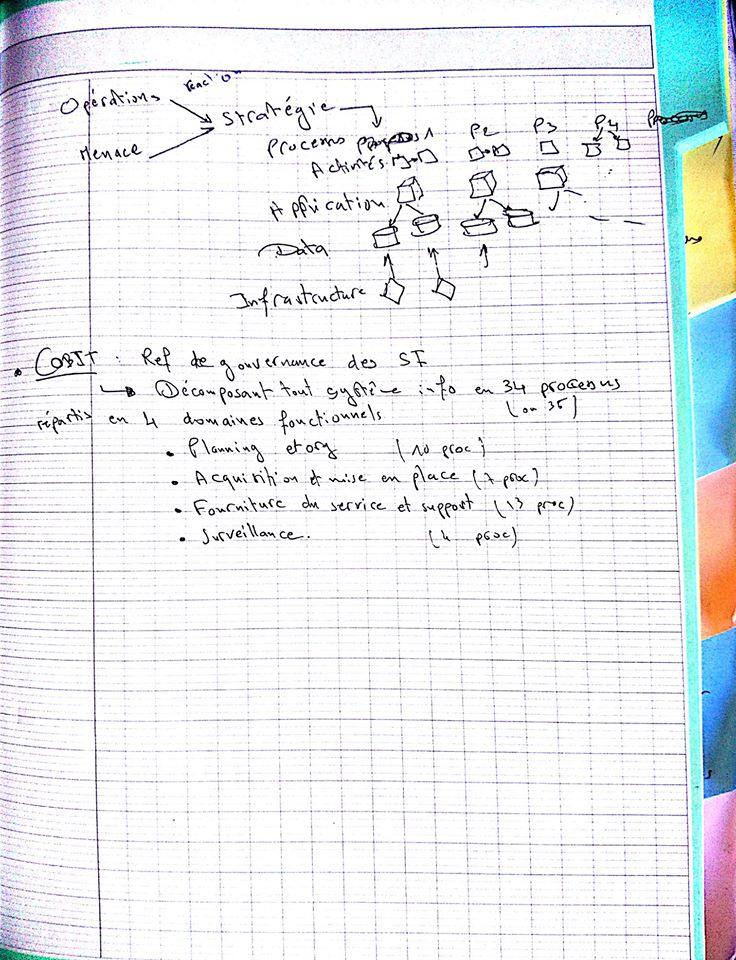 réaction
Opérations
Stratégie
Menace
Processus 1 P2 P3 P4
Activités
Application
Data
Infrastructure
• COBIT : Ref de gouvernance des SI
↳ Décomposant tout système info en 34 processus
(ou 35)
répartis en 4 domaines fonctionnels
• Planning et org (10 proc)
• Acquisition et mise en place (7 proc)
• Fourniture du service et support (13 proc)
• Surveillance. (4 proc)